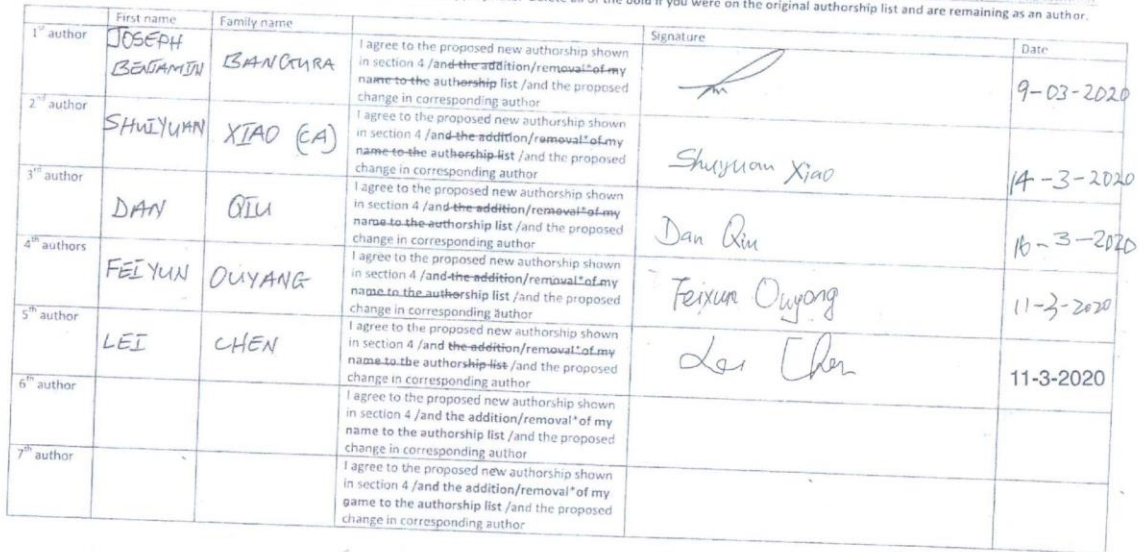 if you were on the original authorship list and are remaining as an author.
First name Family name Signature Date
1st author JOSEPH BENJAMIN BANGURA
I agree to the proposed new authorship shown
in section 4 /and the addition/removal*of my
name to the authorship list /and the proposed
change in corresponding author
9-03-2020
2nd author SHUIYUAN XIAO (CA)
I agree to the proposed new authorship shown
in section 4 /and the addition/removal*of my
name to the authorship list /and the proposed
change in corresponding author
Shuiyuan Xiao 14-3-2020
3rd author DAN QIU
I agree to the proposed new authorship shown
in section 4 /and the addition/removal*of my
name to the authorship list /and the proposed
change in corresponding author
Dan Qiu 16-3-2020
4th authors FEIYUN OUYANG
I agree to the proposed new authorship shown
in section 4 /and the addition/removal*of my
name to the authorship list /and the proposed
change in corresponding author
Feiyun Ouyang 11-3-2020
5th author LEI CHEN
I agree to the proposed new authorship shown
in section 4 /and the addition/removal*of my
name to the authorship list /and the proposed
change in corresponding author
Lei Chen 11-3-2020
6th author
I agree to the proposed new authorship shown
in section 4 /and the addition/removal*of my
name to the authorship list /and the proposed
change in corresponding author
7th author
I agree to the proposed new authorship shown
in section 4 /and the addition/removal*of my
name to the authorship list /and the proposed
change in corresponding author